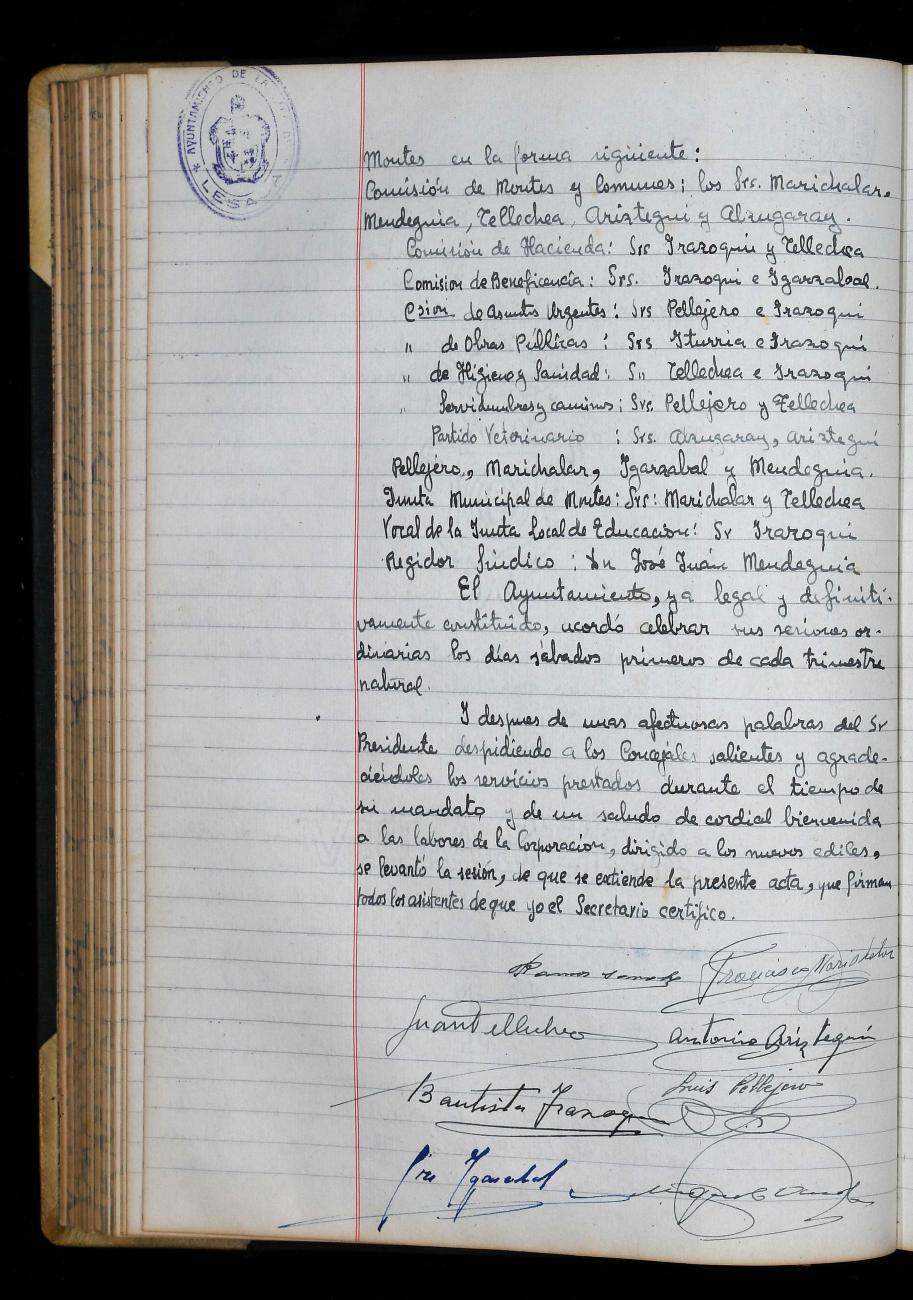 AYUNTAMIENTO DE LA
LESA A
Montes en la forma siguiente:
Comisión de Montes y Comunes; los Srs. Marichalar,
Mendeguia, Tellechea, Ariztegui y Alzugaray.
Comisión de Hacienda: Srs Irazoqui y Tellechea
Comision de Beneficencia: Srs. Irazoqui e Igarzabal.
Csion de Asuntos Urgentes: Srs Pellejero e Irazoqui
" de Obras Públicas: Srs Iturria e Irazoqui
" de Higiene y Sanidad: S" Tellechea e Irazoqui
" Servidumbres y caminos; Srs. Pellejero y Tellechea
Partido Veterinario: Srs. Alzugaray, Ariztegui
Pellejero, Marichalar, Igarzabal y Mendeguia.
Junta Municipal de Montes: Srs: Marichalar y Tellechea
Vocal de la Junta Local de Educación: Sr Irazoqui
Regidor Síndico: Dn José Juán Mendeguia
El Ayuntamiento, ya legal y definiti-
vamente constituido, acordó celebrar sus sesiones or-
dinarias los días sábados primeros de cada trimestre
natural.
I despues de unas afectuosas palabras del Sr
Presidente despidiendo a los Concejales salientes y agrade-
ciéndoles los servicios prestados durante el tiempo de
su mandato y de un saludo de cordial bienvenida
a las labores de la Corporación, dirigido a los nuevos ediles,
se levantó la sesión, de que se extiende la presente acta, que firman
todos los asistentes de que yo el Secretario certifico.
Ramos Francisco Marichalar
Juan Tellechea Antonio Ariztegui
Bautista Irazoqui Luis Pellejero
Igarzabal